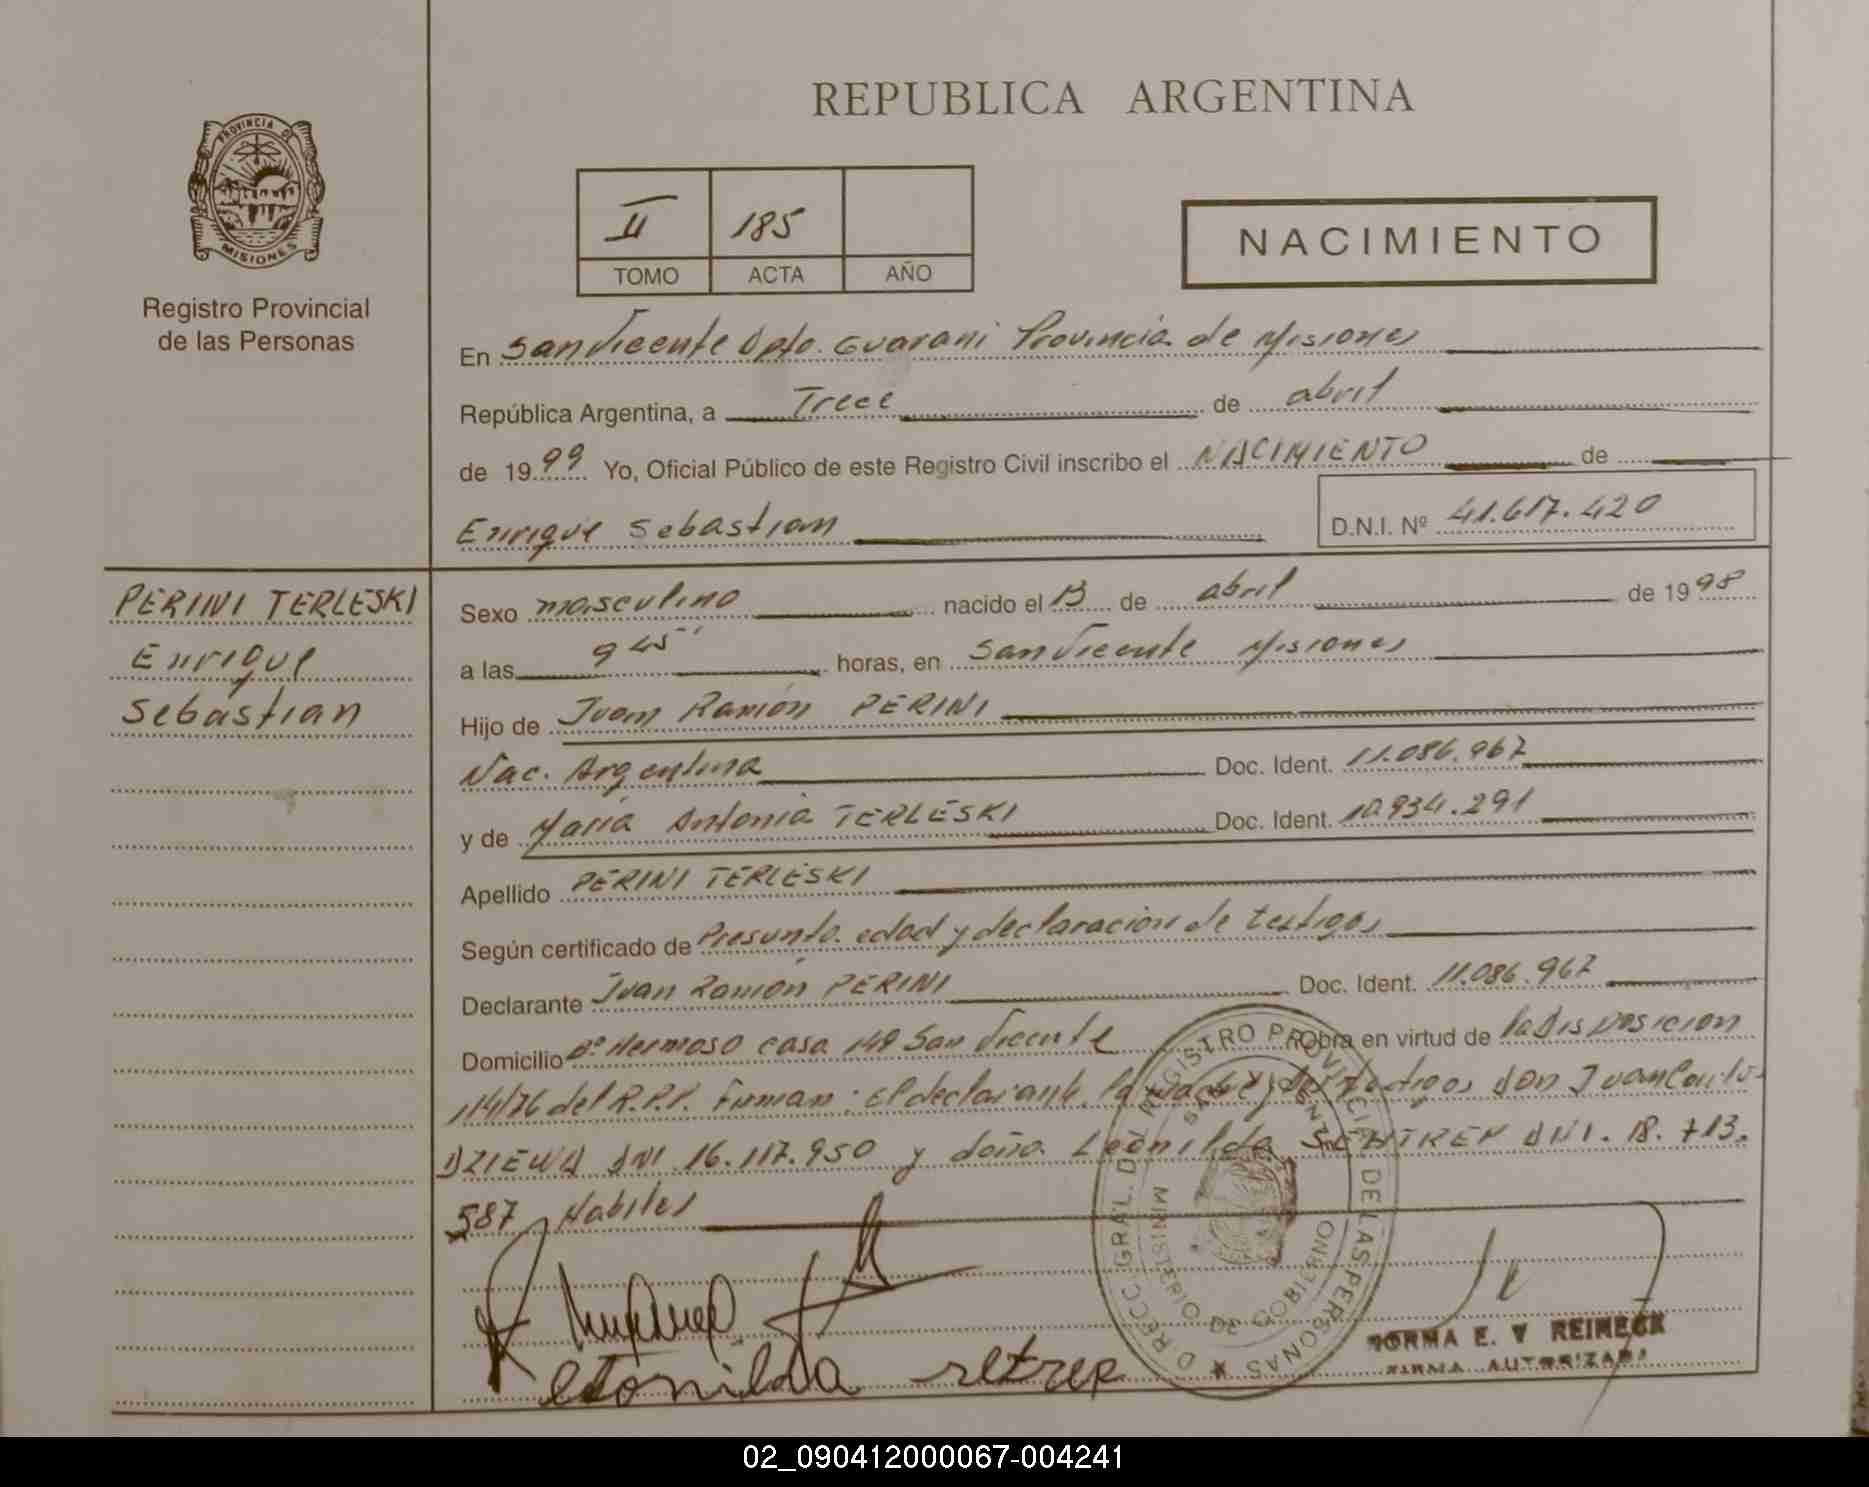 REPUBLICA ARGENTINA
PROVINCIA DE
MISIONES
Registro Provincial
de las Personas
II 185
TOMO ACTA AÑO
NACIMIENTO
En San Vicente Dpto. Guarani Provincia de Misiones
República Argentina, a Trece de abril
de 1999 Yo, Oficial Público de este Registro Civil inscribo el NACIMIENTO de
Enrique Sebastian D.N.I. Nº 41.617.420
PERINI TERLESKI
Enrique
Sebastian
Sexo masculino nacido el 13 de abril de 1998
a las 9 45 horas, en San Vicente Misiones
Hijo de Juan Ramón PERINI
Nac. Argentina Doc. Ident. 11.086.967
y de María Antonia TERLESKI Doc. Ident. 10.934.291
Apellido PERINI TERLESKI
Según certificado de Presunta edad y declaracion de testigos
Declarante Juan Ramón PERINI Doc. Ident. 11.086.967
Domicilio Bº Hermoso casa 149 San Vicente Obra en virtud de la Disposicion
114/76 del R.P.P. Firman: El declarante, la madre y los testigos don Juan Carlos
DZIEWA DNI 16.117.950 y doña Leonilda DNI. 18.713.
587 Habiles
DIRECC. GRAL. DEL REGISTRO PROVINCIAL DE LAS PERSONAS
SAN VICENTE
MINISTERIO DE GOBIERNO
NORMA E. V REINECK
FIRMA AUTORIZADA
02_090412000067-004241